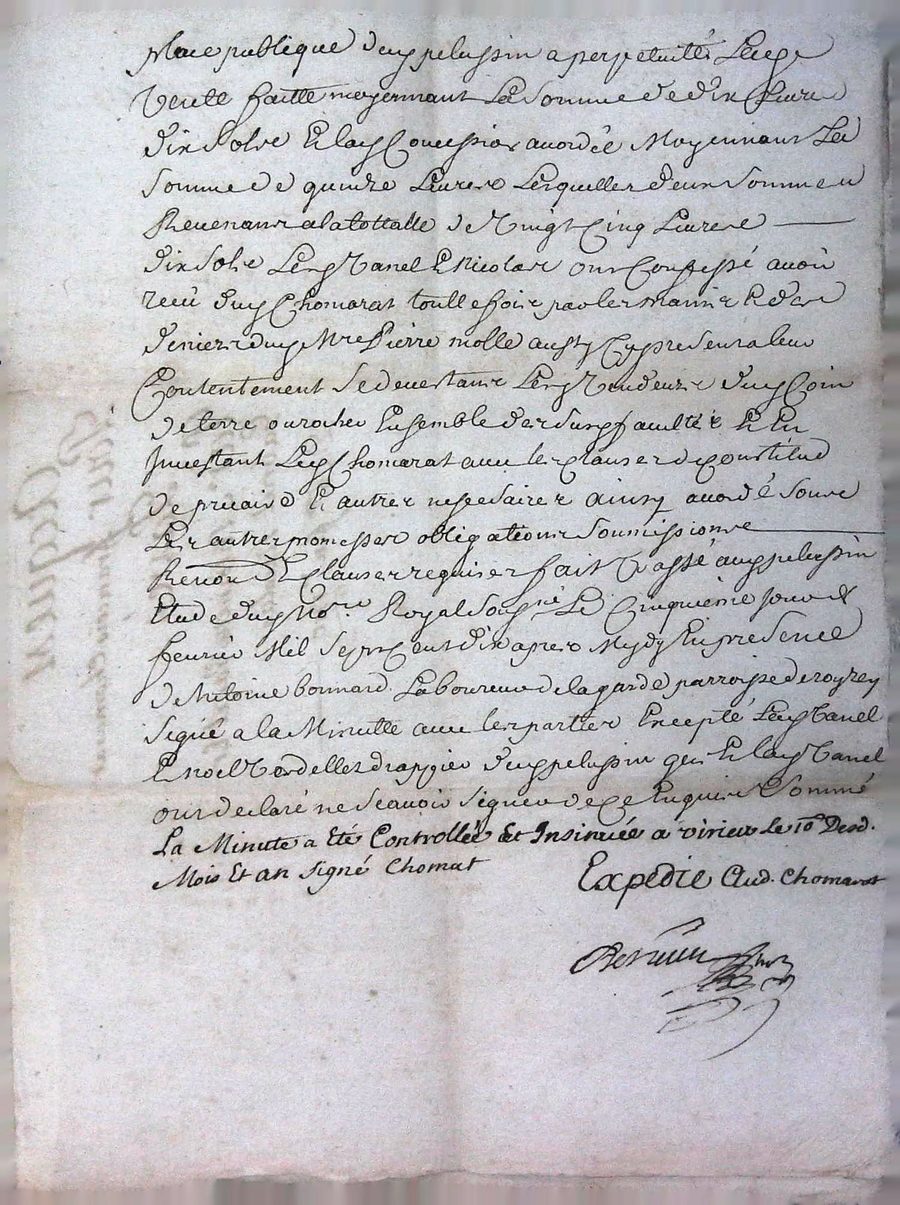 place publique dud pelussin a perpetuité Lad
Vente faitte moyennant La somme de dix Livres
dix Sols Et lad Concession acordée Moyennant La
somme de quinze Livres Lesquelles deux sommes
Revenant a la tottalle de Vingt Cinq Livres
dix Sols Lesd Vanel Et Nicolas ont Confessé avoir
receu dud Chomarat touttefois par les mains Et des
deniers dud Mre Pierre molle aussy Cy present a leur
Contentement se devestant Lesd Vendeurs dud Coin
de terre ou rocher Ensemble de susd facultés Et En
Investant Led Chomarat avec les clauses de constitud
de precaire Et autres nessesaires ainsy acordé sous
Les autres promesses obligations soumissions
Renon Et Clauses requises fait Et passé aud pelussin
Etude dud Nore Royal Soigné Le Cinquieme Jour de
fevrier Mil Sept Cent dix apres Mydy En presence
de Antoine bonnard Laboureur de la garde parroisse de royzey
signé a la Minutte avec les parties Excepté Lad Vanel
Et noel Verdellet drappier dud pelussin qui Et lad Vanel
ont declaré ne Scavoir signer de Ce Enquis Et Sommé
La Minute a Eté Controllée Et Insinuée a virieu Le 10 Desd.
Mois Et an Signé Chomat
Expedié Aud. Chomarat